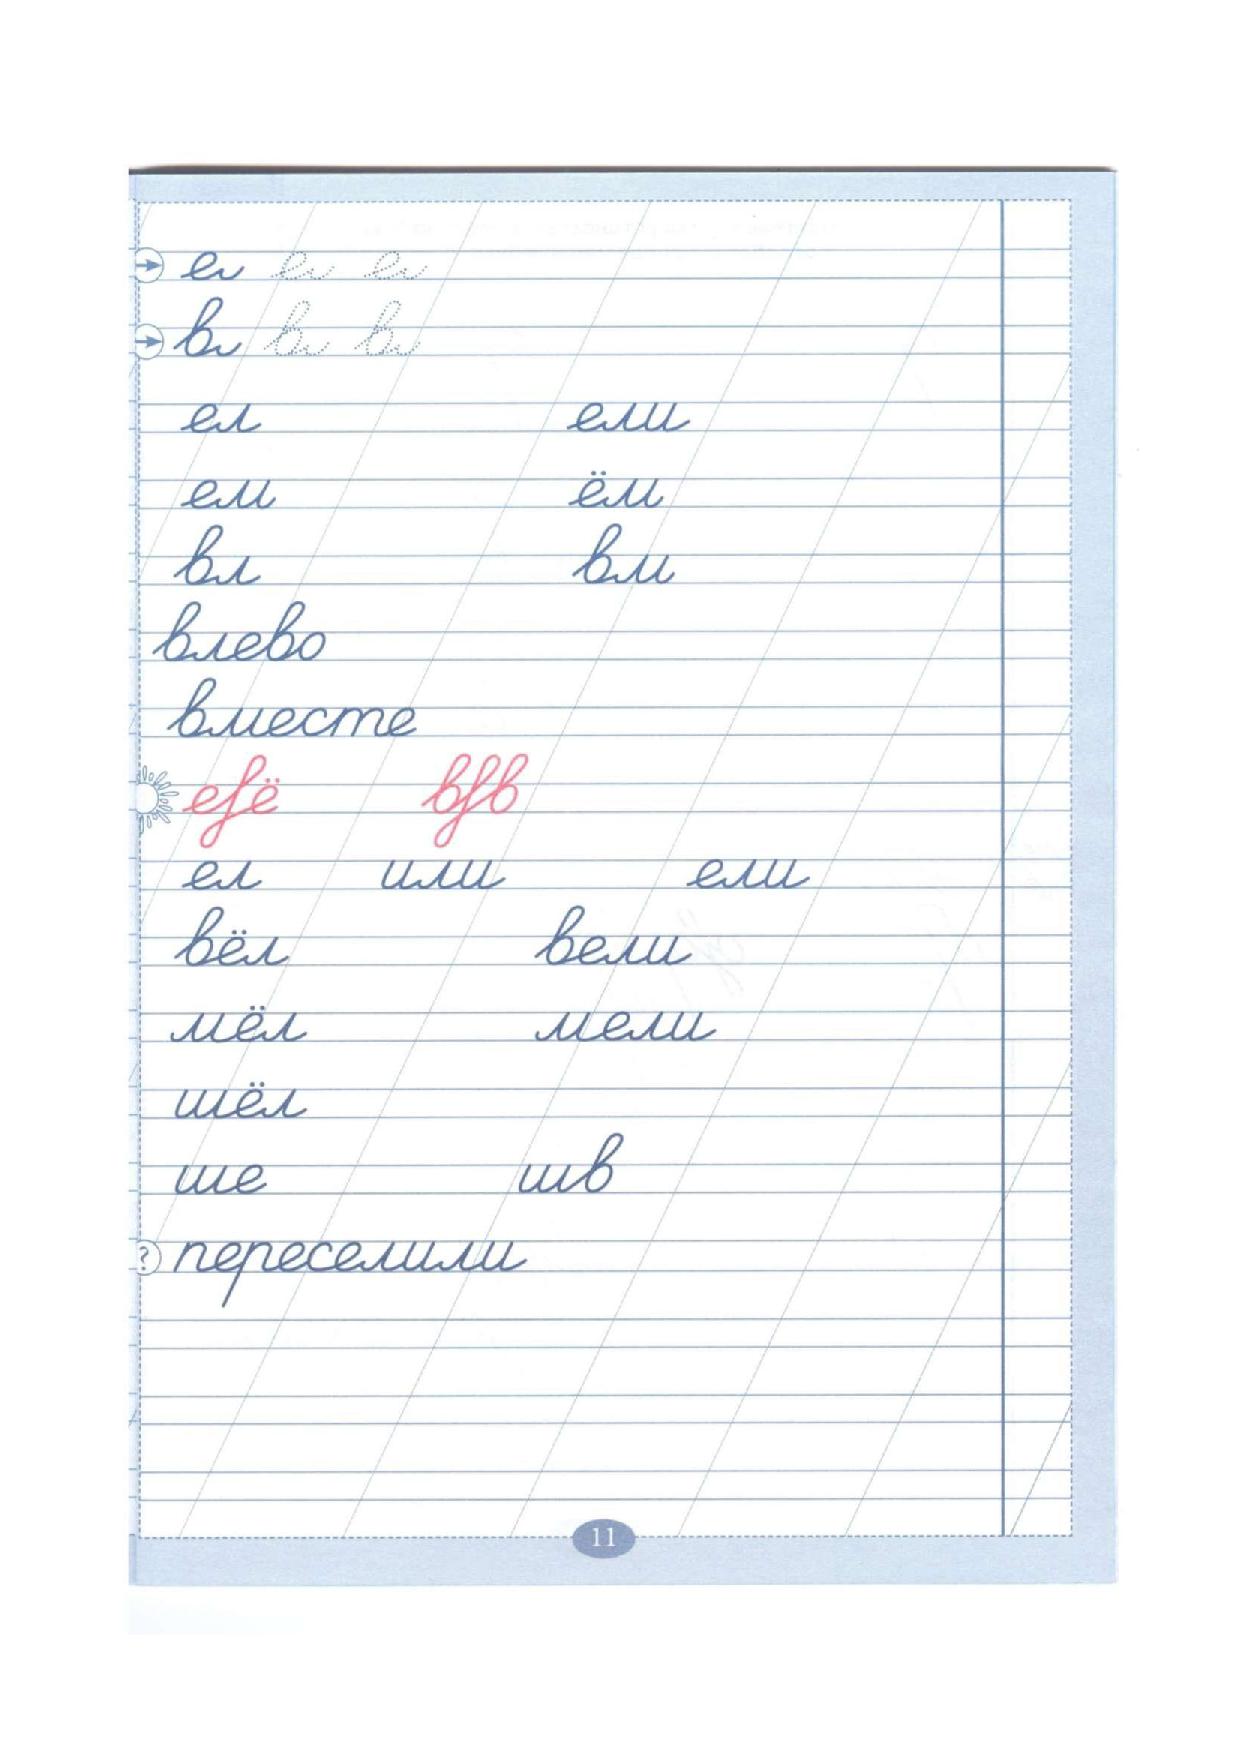 ел ели
ем ём
вл вм
влево
вместе
ел или ели
вёл вели
мёл мели
шёл
ше шв
? переселили
11